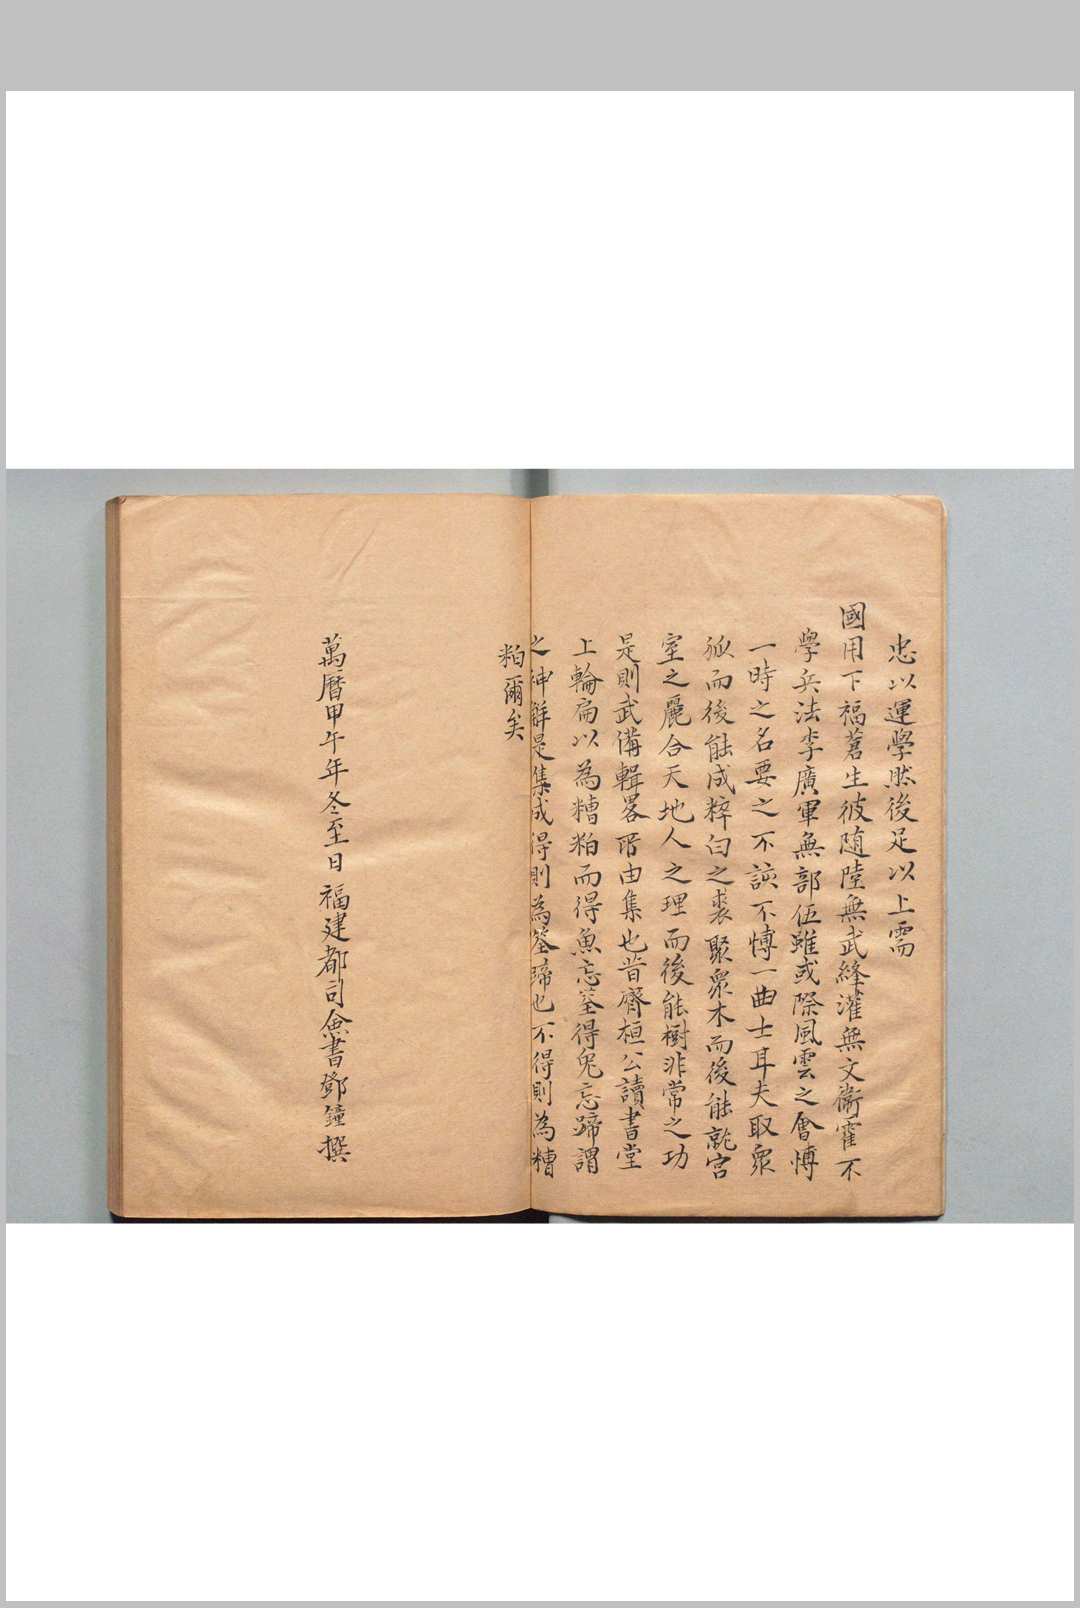 忠以運學然後足以上需
國用下福蒼生彼随陸無武絳灌無文衛霍不
學兵法李廣軍無部伍雖或際風雲之會博
一時之名要之不該不博一曲士耳夫取衆
狐而後能成粹白之裘聚衆木而後能就宮
室之麗合天地人之理而後能樹非常之功
是則武備輯畧所由集也昔齊桓公讀書堂
上輪扁以為糟粕而得魚忘筌得兔忘蹄謂
之神觧是集成得則為筌蹄也不得則為糟
粕爾矣
萬曆甲午年冬至日福建都司僉書鄧鐘撰